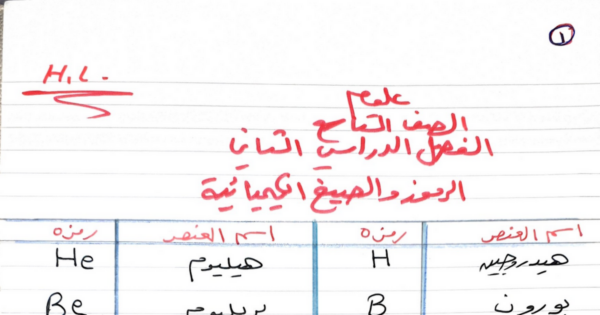 ١
H.L.
علوم
الصف التاسع
الفصل الدراسي الثاني
الرموز والصيغ الكيميائية
اسم العنصر رمزه اسم العنصر رمزه
هيدروجين H هيليوم He
بورون B بريليوم Be